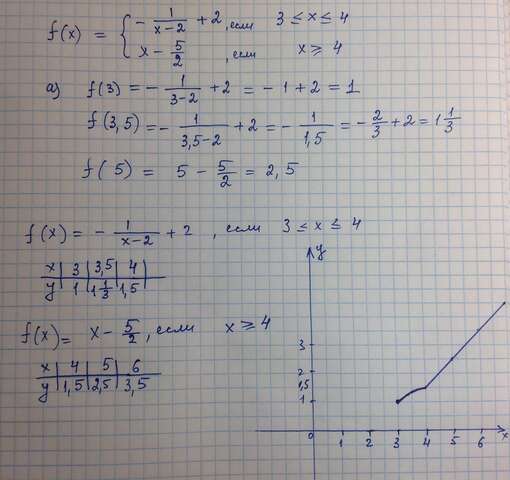 f(x) = { - 1/(x-2) + 2, если 3 ≤ x ≤ 4
x - 5/2, если x ≥ 4
а) f(3) = - 1/(3-2) + 2 = - 1 + 2 = 1
f(3,5) = - 1/(3,5-2) + 2 = - 1/1,5 = - 2/3 + 2 = 1 1/3
f(5) = 5 - 5/2 = 2,5
f(x) = - 1/(x-2) + 2, если 3 ≤ x ≤ 4
x | 3 | 3,5 | 4
y | 1 | 1 1/3 | 1,5
f(x) = x - 5/2, если x ≥ 4
x | 4 | 5 | 6
y | 1,5 | 2,5 | 3,5
y
3
2
1,5
1
0 1 2 3 4 5 6 x